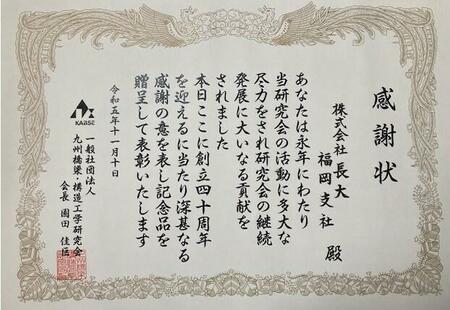 感謝状
株式会社長大
福岡支社 殿
あなたは永年にわたり
当研究会の活動に多大な
尽力をされ研究会の継続
発展に大いなる貢献を
されました
本日ここに創立四十周年
を迎えるに当り深甚なる
感謝の意を表し記念品を
贈呈して表彰いたします
令和五年十一月十日
KABSE
一般社団法人
九州橋梁・構造工学研究会
会長 園田 佳巨